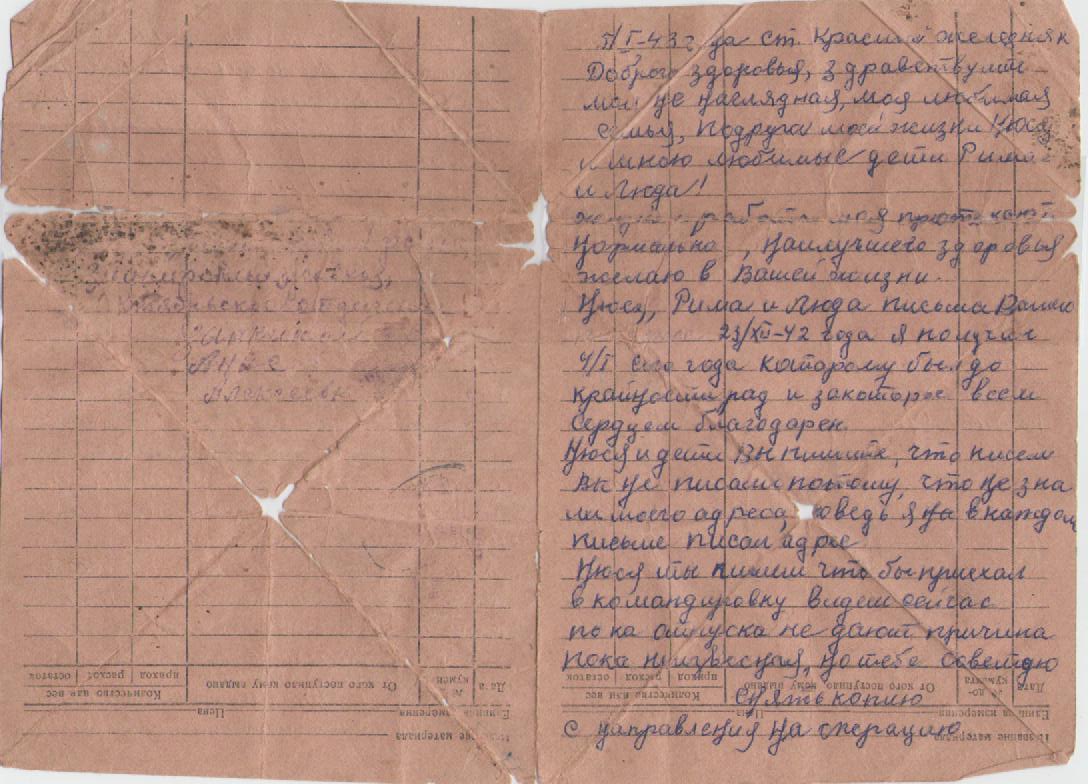 5/I-43 г на ст. Красный железняк
Доброго здоровья, здравствуйте
мои не наглядная, моя любимая
семья, подруга моей жизни Нюся
и мною любимые дети Рима
и Люда!
и работа моя протекают
Нормально, Наилучшего здоровья
желаю в Вашей жизни.
Нюся, Рима и Люда письмо Ваше
23/XII-42 года я получил
4/I сего года которому был до
крайности рад и за которое всем
сердцем благодарен
Нюся и дети Вы пишите, что писем
Вы не писали потому, что не зна
ли моего адреса, но ведь я в каждом
письме писал адрес
Нюся ты пишеш что бы приехал
в командировку видеш сейчас
пока отпуска не дают причина
пока неизвесная, но тебе советую
Снять копию
с направления на операцию
Октябрьское отделение
Анне
Алексеевне
Дата
№ докумен
От кого поступило кому выдано
Количество или вес
приход
расход
остаток
Единица измерения
Цена
Название материала
Дата
№ документа
От кого поступило кому выдано
Количество или вес
приход
расход
остаток
Единица измерения
Цена
Название материала